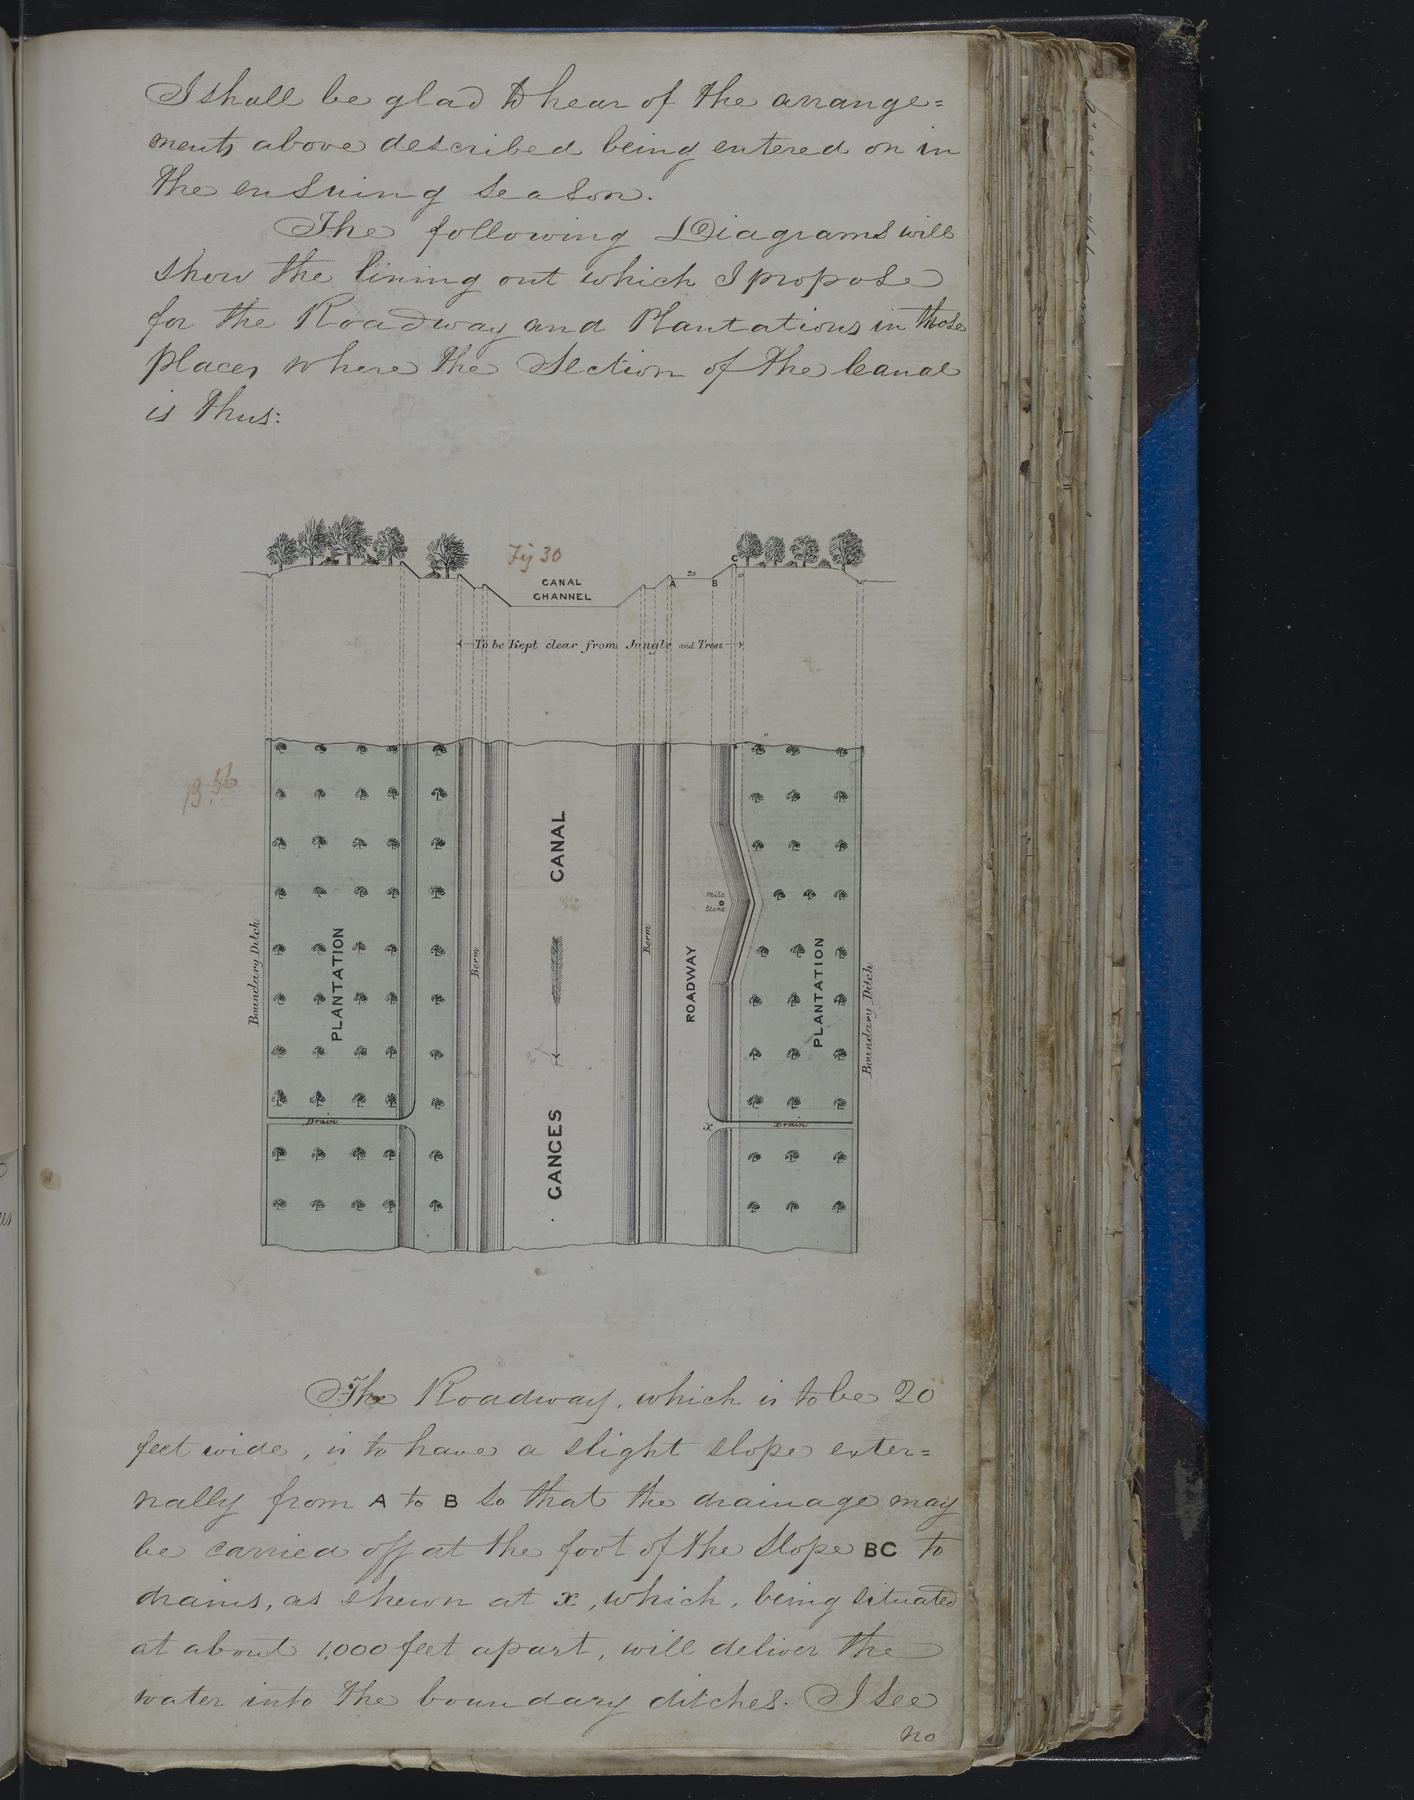 I shall be glad to hear of the arrange=
ments above described being entered on in
the ensuing season.
The following Diagrams will
show the lining out which I propose
for the Roadway and Plantations in those
places where the Section of the Canal
is thus:
Fig 30
CANAL
CHANNEL
A
20
B
C
10
To be Kept clear from Jungle and Trees
B. 56
Boundary Ditch
PLANTATION
Berm
GANGES CANAL
Berm
ROADWAY
Mile
Stone
PLANTATION
Boundary Ditch
Drain
x
Drain
The Roadway, which is to be 20
feet wide, is to have a slight slope exter=
nally from A to B so that the drainage may
be carried off at the foot of the slope BC to
drains, as shewn at x, which, being situated
at about 1,000 feet apart, will deliver the
water into the boundary ditches. I see
no